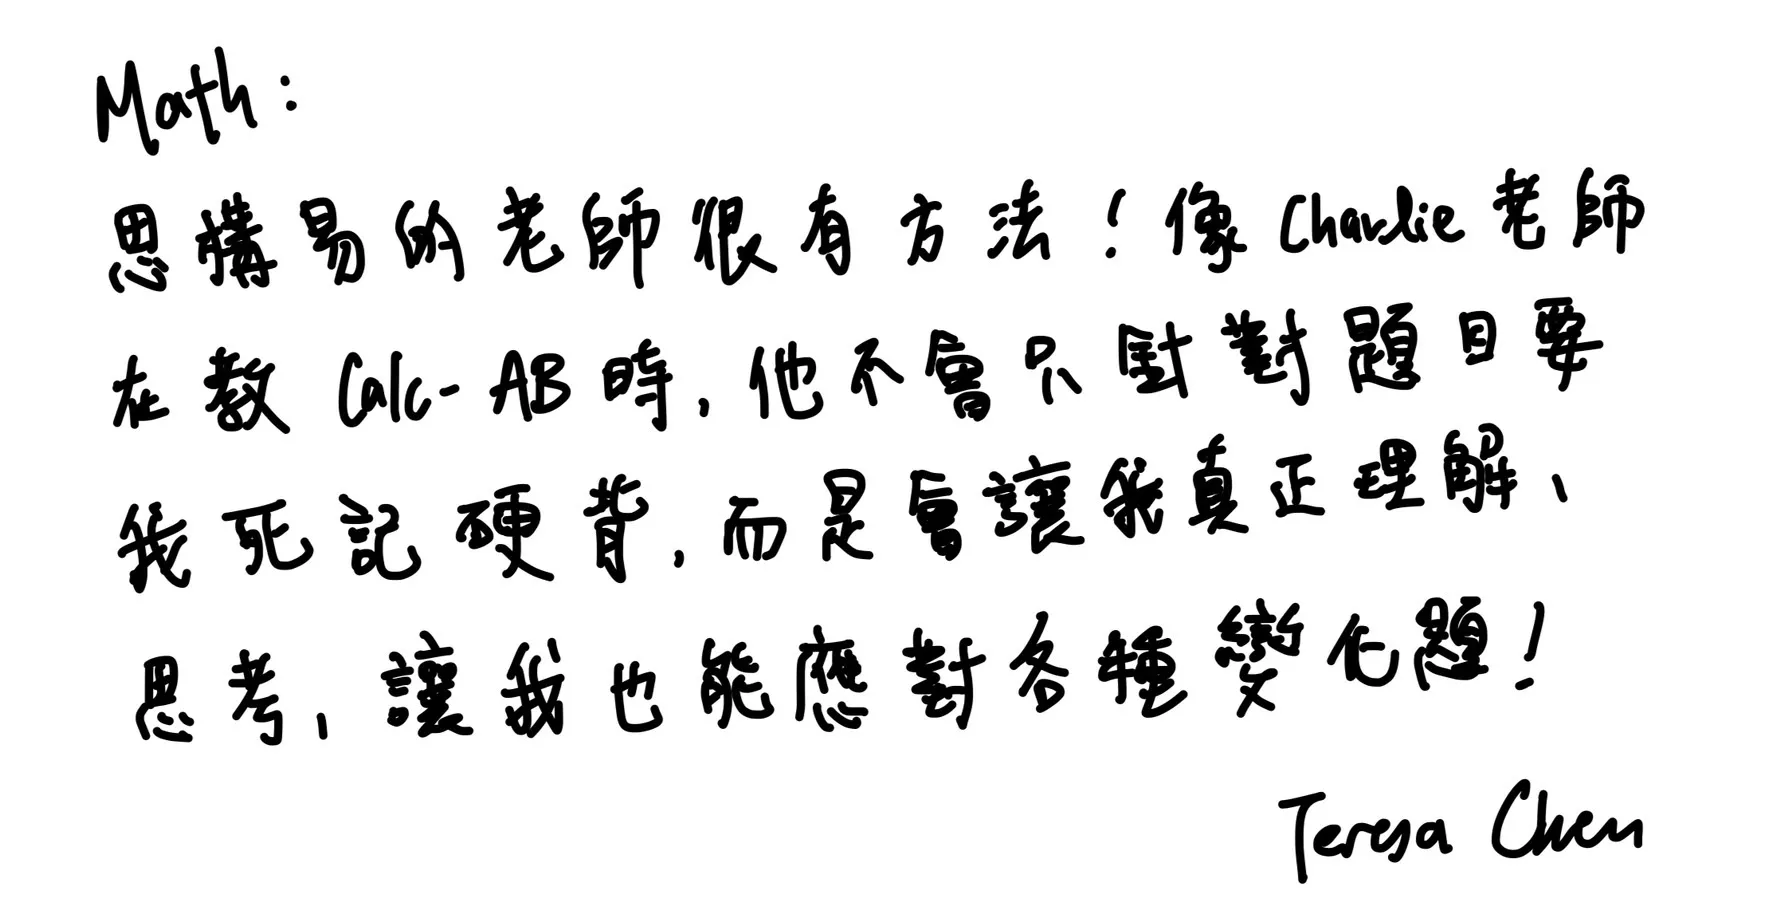 Math:
思構易的老師很有方法！像Charlie老師
在教 Calc-AB時，他不會只針對題目要
我死記硬背，而是會讓我真正理解、
思考，讓我也能應對各種變化題！
Teresa Chen